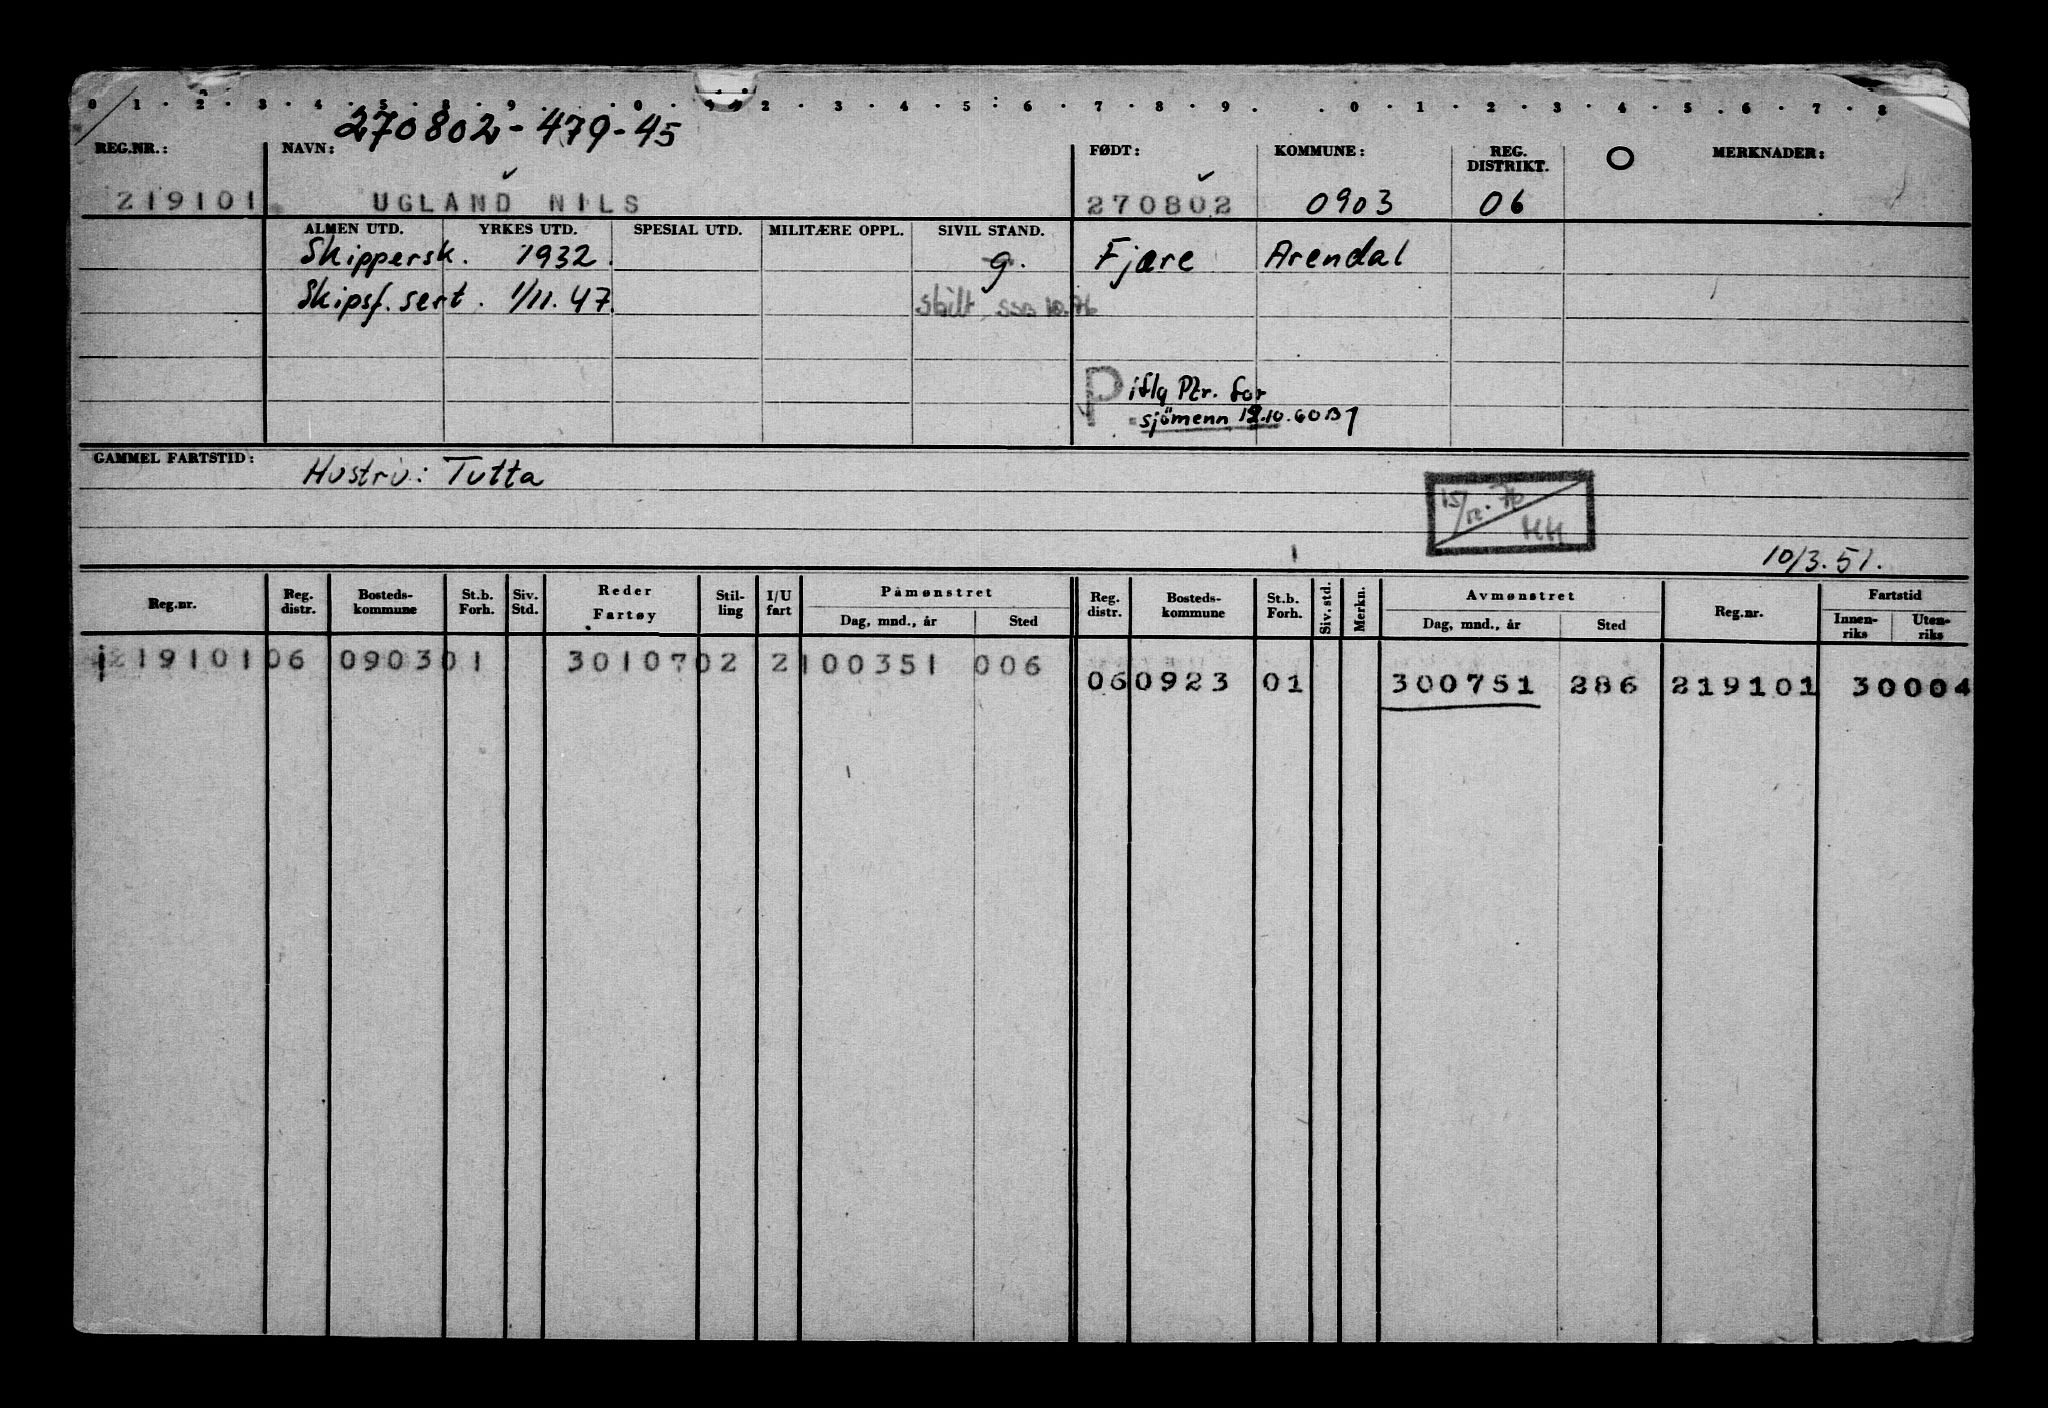 0 1 2 3 4 5 8 9 0 2 3 4 5 6 7 8 9 0 1 2 3 4 5 6 7 8
270802-479-45
REG.NR.: NAVN: FØDT: KOMMUNE: REG. DISTRIKT. O MERKNADER:
219101 UGLAND NILS 270802 0903 06
ALMEN UTD. YRKES UTD. SPESIAL UTD. MILITÆRE OPPL. SIVIL STAND.
Skippersk. 1932. g. Fjære Arendal
Skipsf. sert. 1/11.47.
P iflg Ptr. for
sjömenn 12.10.60
GAMMEL FARTSTID: Hustru: Tutta
15/12.76
HH
10/3.51.
Reg.nr. Reg. distr. Bosteds- kommune St.b. Forh. Siv. Std. Reder Fartøy Stil- ling I/U fart Påmønstret Dag, mnd., år Sted Reg. distr. Bosteds- kommune St.b. Forh. Siv. std. Merkn. Avmønstret Dag, mnd., år Sted Reg.nr. Fartstid Innen- riks Uten- riks
219101 06 0903 01 301070 2 2 100351 006
06 0923 01 300751 286 219101 30004